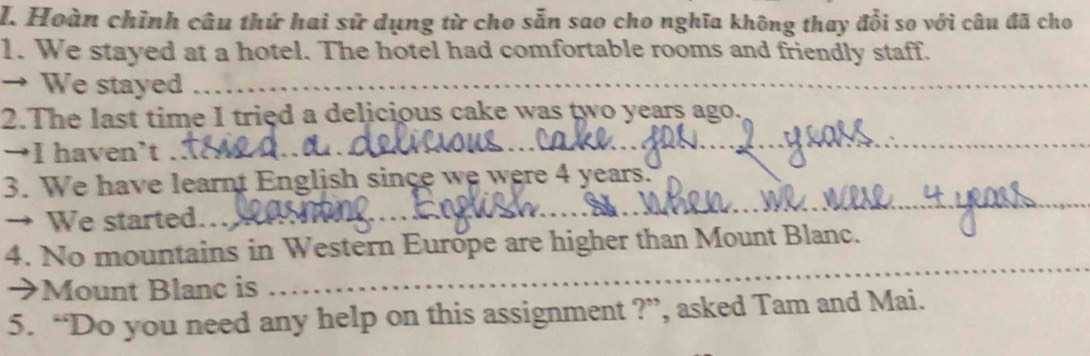 I. Hoàn chỉnh câu thứ hai sử dụng từ cho sẵn sao cho nghĩa không thay đổi so với câu đã cho
1. We stayed at a hotel. The hotel had comfortable rooms and friendly staff.
→ We stayed ........
2.The last time I tried a delicious cake was two years ago.
→I haven't tried a delicious cake for 2 years.
3. We have learnt English since we were 4 years.
→ We started learnting English when we were 4 years
4. No mountains in Western Europe are higher than Mount Blanc.
→Mount Blanc is ........
5. “Do you need any help on this assignment ?”, asked Tam and Mai.